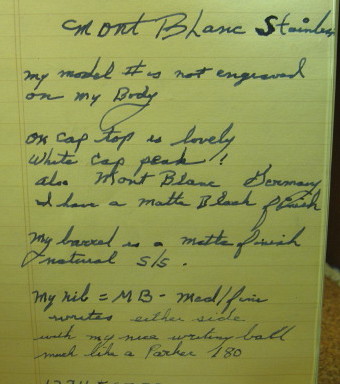 Mont Blanc Stainless
my model # is not engraved
on my Body
on cap top is lovely
White cap peak !
also Mont Blanc Germany
I have a matte Black finish
My barrel is a matte finish
natural S/S.
My nib = MB - med/fine
writes either side
with my nice writing ball
much like a Parker 180